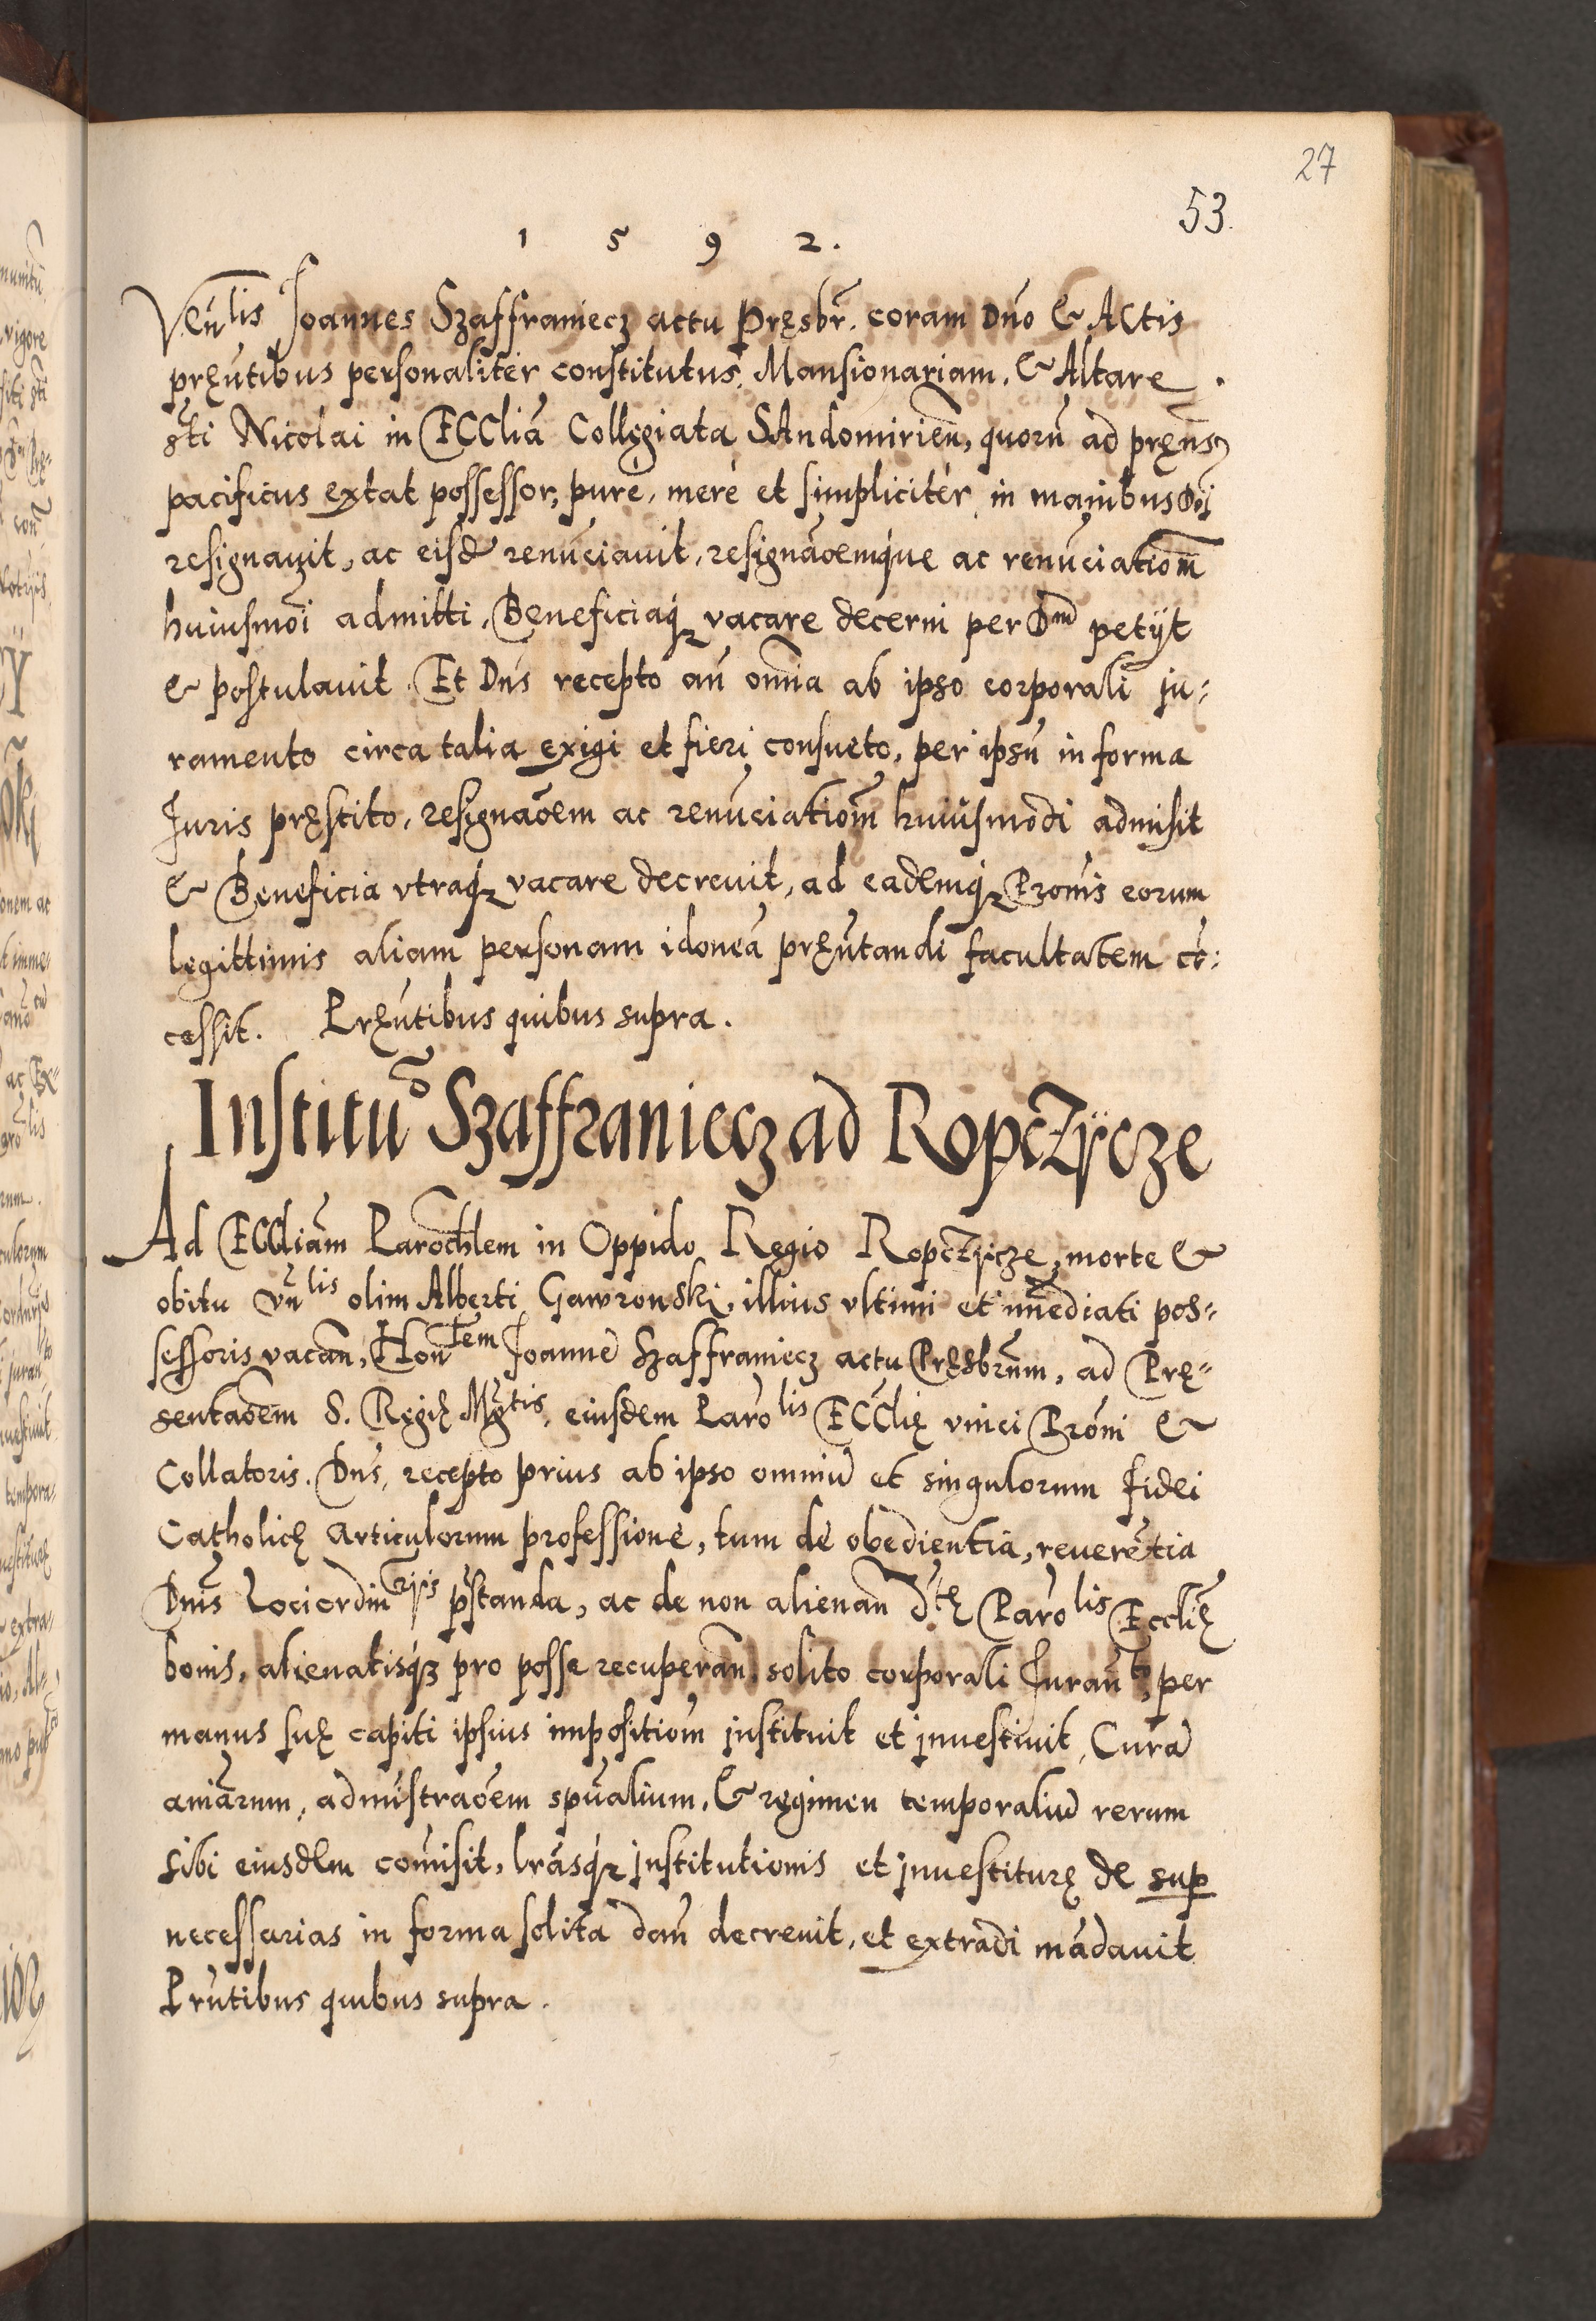 27
53.
1 5 9 2.
Veñlis Joannes Szaffraniecz actu Pręsbr̃. coram Dño & Actis
pręñtibus personaliter constitutus, Mansionariam, & Altare .
sti Nicolai in Ecclia Collegiata Sandomirieñ, quorũ ad pręns
pacificus extat possessor, purè, merè et simplicitèr in manibus Dñi
resignauit, ac eisd renũciauit, resignãoemque ac renũciationẽ
huiusmõi admitti, Beneficiaq3 vacare decerni per Dnm petijt
& postulauit. Et Dñs recepto añ omnia ab ipso corporali ju-
ramento circa talia exigi et fieri consueto, per ipsũ in forma
Juris pręstito, resignãoem ac renũciationẽ huiusmodi admisit
& Beneficia vtraq3 vacare decreuit, ad eademq3 Pronis eorum
legittimis aliam personam idoneã pręñtandi facultatem cõ-
cessit. Pręñtibus quibus supra.
Institutõ Szaffraniecz ad Ropczÿcze
Ad Eccliam Parochlem in Oppido Regio Ropczÿcze, morte &
obitu Vñlis olim Alberti Gawronski, illius vltimi et immediati pos-
sessoris vacañ, Hontem Joannẽ Szaffraniecz actu Pręsbrum, ad Prę-
sentãoem S. Regię Mgtis, eiusdem Parolis Ecclię vnici Proni &
Collatoris. Dñs, recepto prius ab ipso omniũ et singulorum fidei
Catholicę articulorum professione, tum de obedientia, reuerẽtia
Dnis Lociordinrijs pstanda, ac de non alienañ dtę Parolis Ecclię
bonis, alienatisq3 pro posse recuperañ, solito corporali Juramto, per
manus suę capiti ipsius impositionẽ instituit et inuestiuit, Curã
aniãrum, administrãoem spũalium, & regimen temporaliũ rerum
sibi eiusdem comisit, lrasq3 institutionis et inuestiturę de sup
necessarias in forma solita dañ decreuit, et extradi mãdauit
Prñtibus quibus supra.